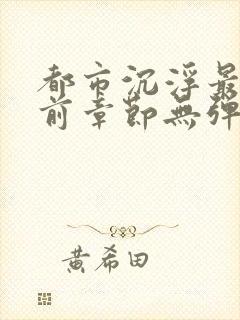 都市沉浮最
前章節無彈
黃希田